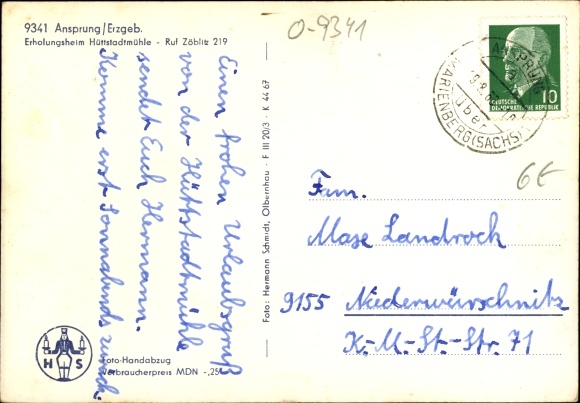 9341 Ansprung/Erzgeb.
Erholungsheim Hüttstadtmühle - Ruf Zöblitz 219
Einen frohen Urlaubsgruß
von der Hüttstadtmühle
sendet Euch Hermann.
Komme erst Sonnabends zurück.
H S
Foto-Handabzug
Verbraucherpreis MDN -,25
Foto: Hermann Schmidt, Olbernhau - F III 20/3 - K 44 67
O-9341
ANSPRUNG
über
MARIENBERG (SACHS)
10
DEUTSCHE
DEMOKRATISCHE REPUBLIK
6€
Fam.
Maxe Landrock
9155 Niederwürschnitz
K.-M.-St.-Str. 71